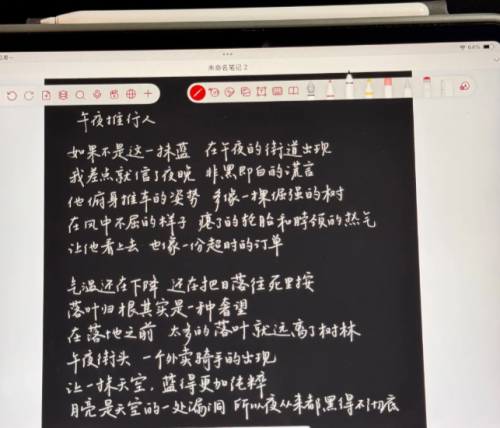 64%
未命名笔记 2
午夜推行人
如果不是这一抹蓝 在午夜的街道出现
我差点就信了夜晚 非黑即白的谎言
他俯身推车的姿势 多像一棵倔强的树
在风中不屈的样子 瘪了的轮胎和脖颈的热气
让他看上去 也像一份超时的订单
气温还在下降 还在把日落往死里按
落叶归根其实是一种奢望
在落地之前 太多的落叶就远离了树林
午夜街头 一个外卖骑手的出现
让一抹天空，蓝得更加纯粹
月亮是天空的一处漏洞 所以夜从来都黑得不彻底